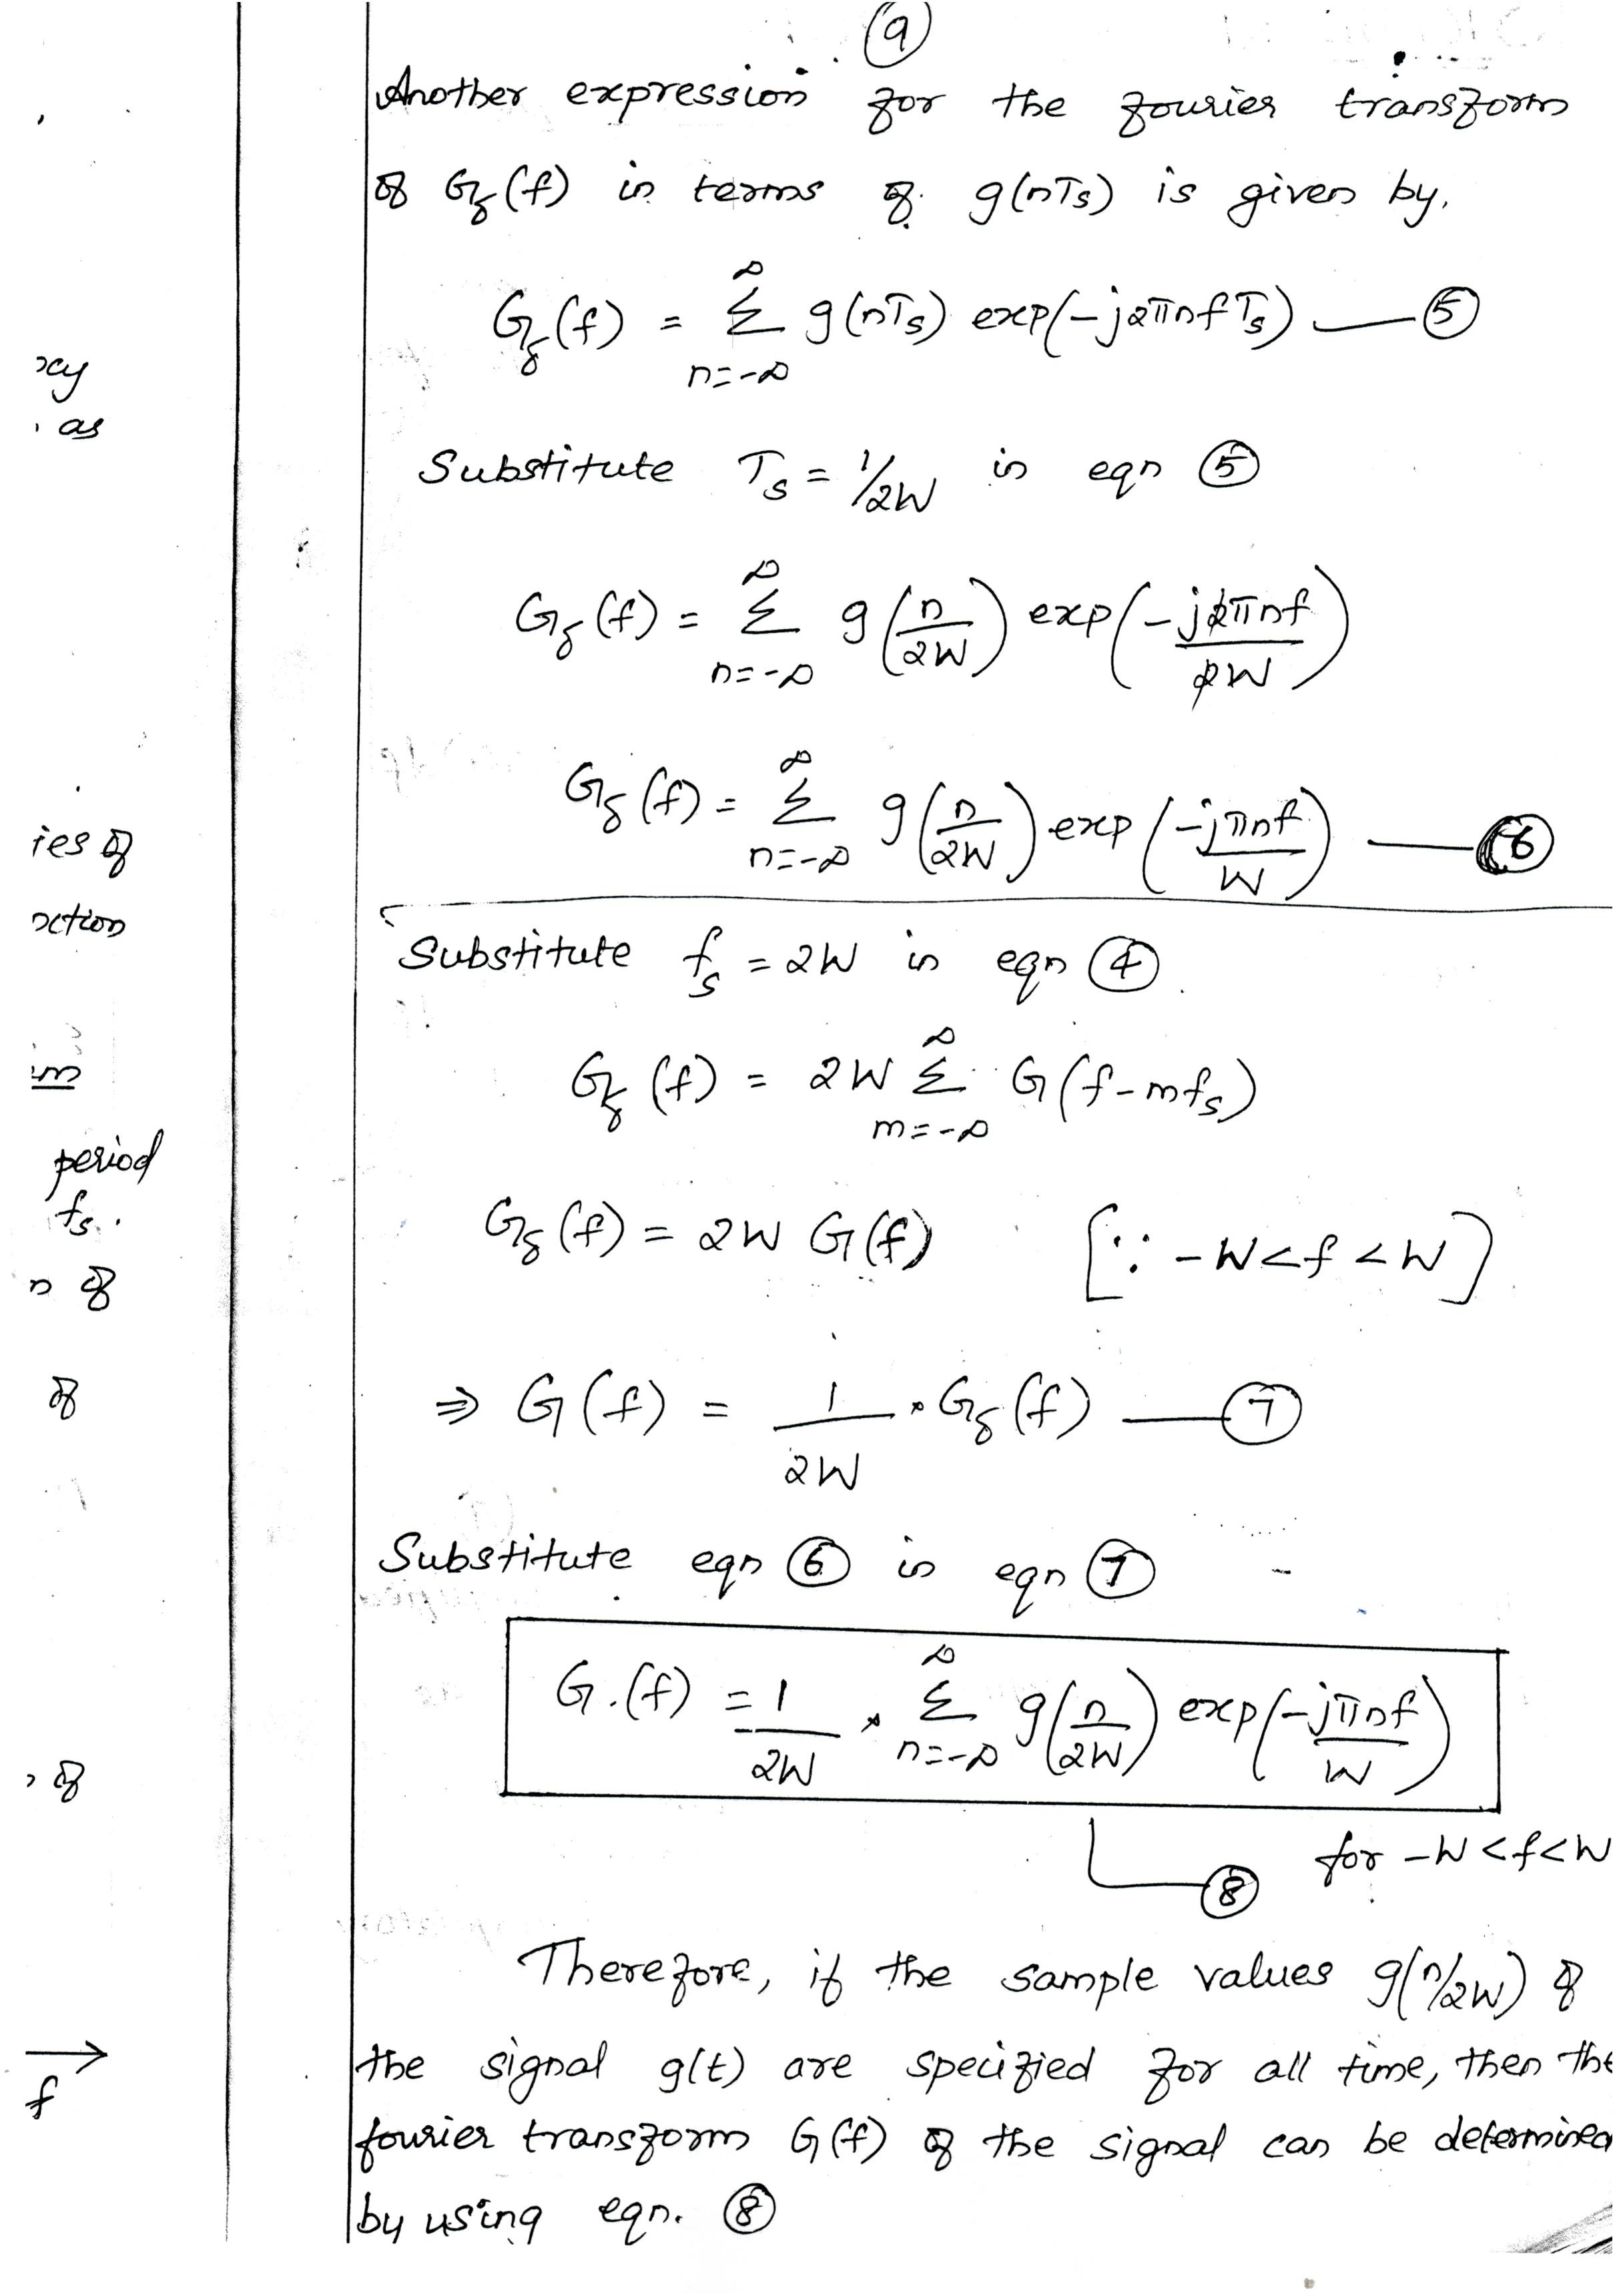 9
Another expression for the fourier transform
of Gδ(f) in terms of g(nTs) is given by,
Gδ(f) = ∞ Σ n=-∞ g(nTs) exp(-j2πnfTs) — ⑤
Substitute Ts = 1/2W in eqn ⑤
Gδ(f) = ∞ Σ n=-∞ g(n/2W) exp(-j2πnf/2W)
Gδ(f) = ∞ Σ n=-∞ g(n/2W) exp(-jπnf/W) — ⑥
Substitute fs = 2W in eqn ④
Gδ(f) = 2W ∞ Σ m=-∞ G(f-mfs)
Gδ(f) = 2W G(f) [∵ -W<f<W]
⇒ G(f) = 1/2W · Gδ(f) — ⑦
Substitute eqn ⑥ in eqn ⑦
G(f) = 1/2W · ∞ Σ n=-∞ g(n/2W) exp(-jπnf/W)
for -W<f<W
⑧
Therefore, if the sample values g(n/2W) of
the signal g(t) are specified for all time, then the
fourier transform G(f) of the signal can be determined
by using eqn. ⑧
as
ies of
period
fs.
of
of
of
f